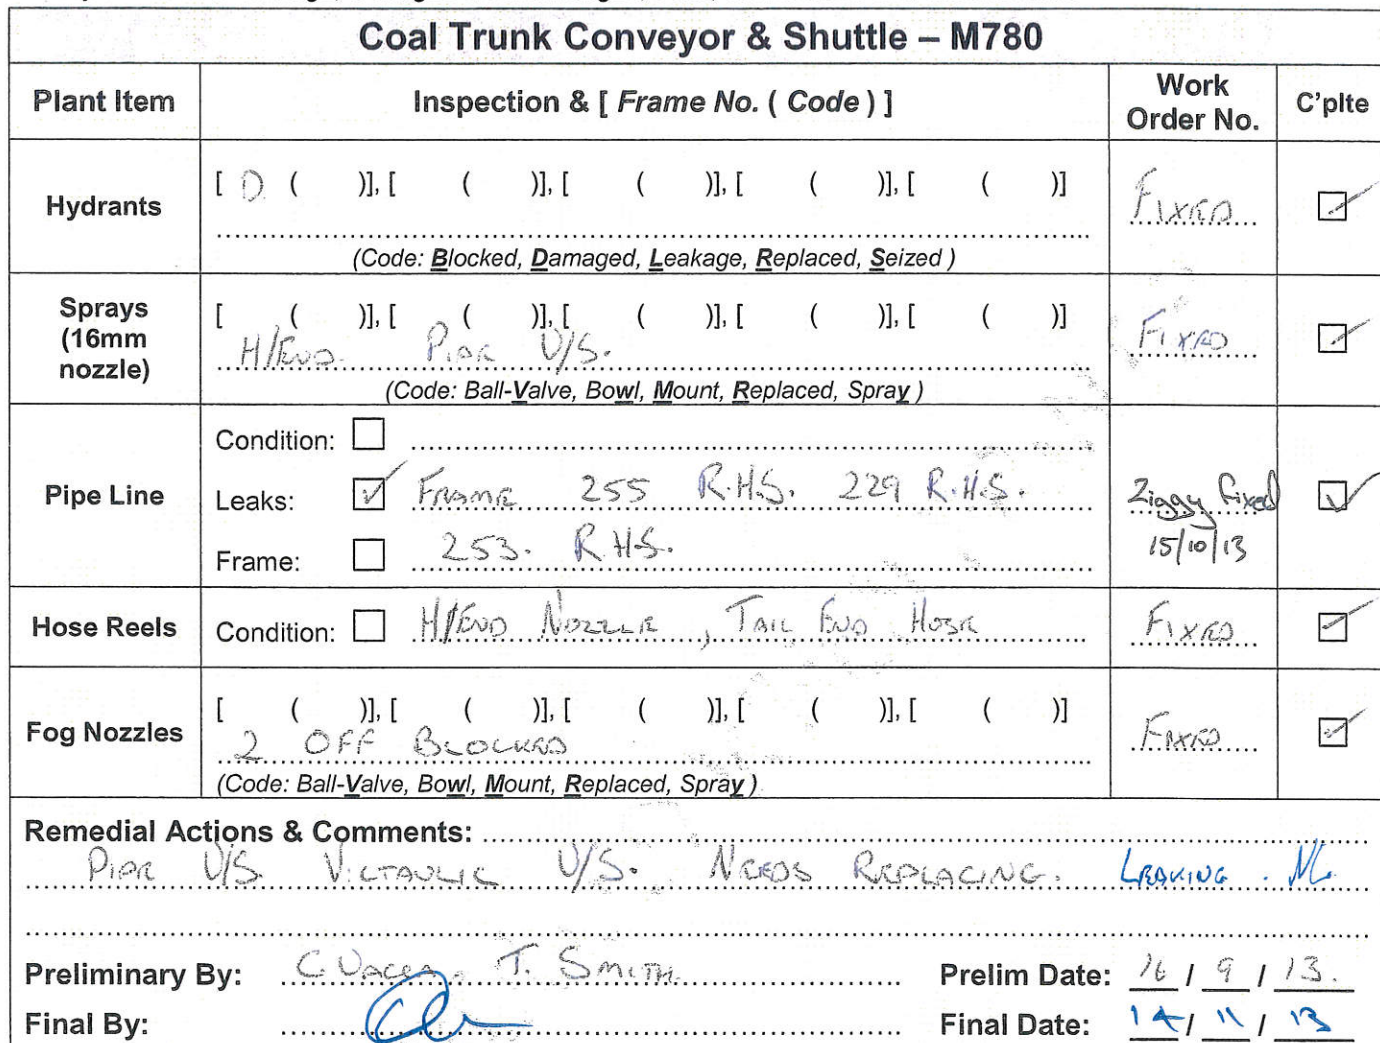 Coal Trunk Conveyor & Shuttle – M780
Plant Item Inspection & [ Frame No. ( Code ) ] Work Order No. C'plte
Hydrants [ D ( )], [ ( )], [ ( )], [ ( )], [ ( )] FIXED
(Code: Blocked, Damaged, Leakage, Replaced, Seized )
Sprays (16mm nozzle) [ ( )], [ ( )], [ ( )], [ ( )], [ ( )] FIXED
H/END. PIPE U/S.
(Code: Ball-Valve, Bowl, Mount, Replaced, Spray )
Pipe Line
Condition: ☐
Leaks: ☑ FRAME 255 R.H.S. 229 R.H.S. Ziggy Fixed
Frame: ☐ 253. R.H.S. 15/10/13
Hose Reels Condition: ☐ H/END NOZZLE, TAIL END HOSE FIXED
Fog Nozzles [ ( )], [ ( )], [ ( )], [ ( )], [ ( )] FIXED
2 OFF BLOCKED
(Code: Ball-Valve, Bowl, Mount, Replaced, Spray )
Remedial Actions & Comments:
PIPE U/S. VICTAULIC U/S. NEEDS REPLACING. LEAKING.
Preliminary By: T. SMITH Prelim Date: 16 / 9 / 13.
Final By: Final Date: 14 / 11 / 13